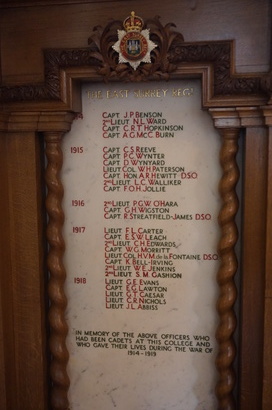 THE EAST SURREY REGT
14 CAPT. J.P. BENSON
2ND LIEUT. N.L. WARD
CAPT. C.R.T. HOPKINSON
CAPT. A.G. MCC. BURN
1915 CAPT. C.S. REEVE
CAPT. P.C. WYNTER
CAPT. D. WYNYARD
LIEUT. COL. W.H. PATERSON
CAPT. HON. A.R. HEWITT D.S.O
2ND LIEUT. L.C. WALLIKER
CAPT. F.O.H. JOLLIE
1916 2ND LIEUT. P.G.W. O'HARA
CAPT. G.H. WIGSTON
CAPT. R. STREATFEILD-JAMES D.S.O
1917 LIEUT. F.L. CARTER
CAPT. E.S.W. LEACH
2ND LIEUT. C.H. EDWARDS
CAPT. W.G. MORRITT
LIEUT. COL. H.V.M. de la FONTAINE D.S.O
CAPT. K. BELL-IRVING
2ND LIEUT. W.E. JENKINS
2ND LIEUT. S.M. GASHION
1918 LIEUT. G.E. EVANS
CAPT. E.G. LAWTON
LIEUT. G.T. CAESAR
LIEUT. C.R. NICHOLS
LIEUT. J.L. ABBISS
IN MEMORY OF THE ABOVE OFFICERS WHO
HAD BEEN CADETS AT THIS COLLEGE AND
WHO GAVE THEIR LIVES DURING THE WAR OF
1914-1919